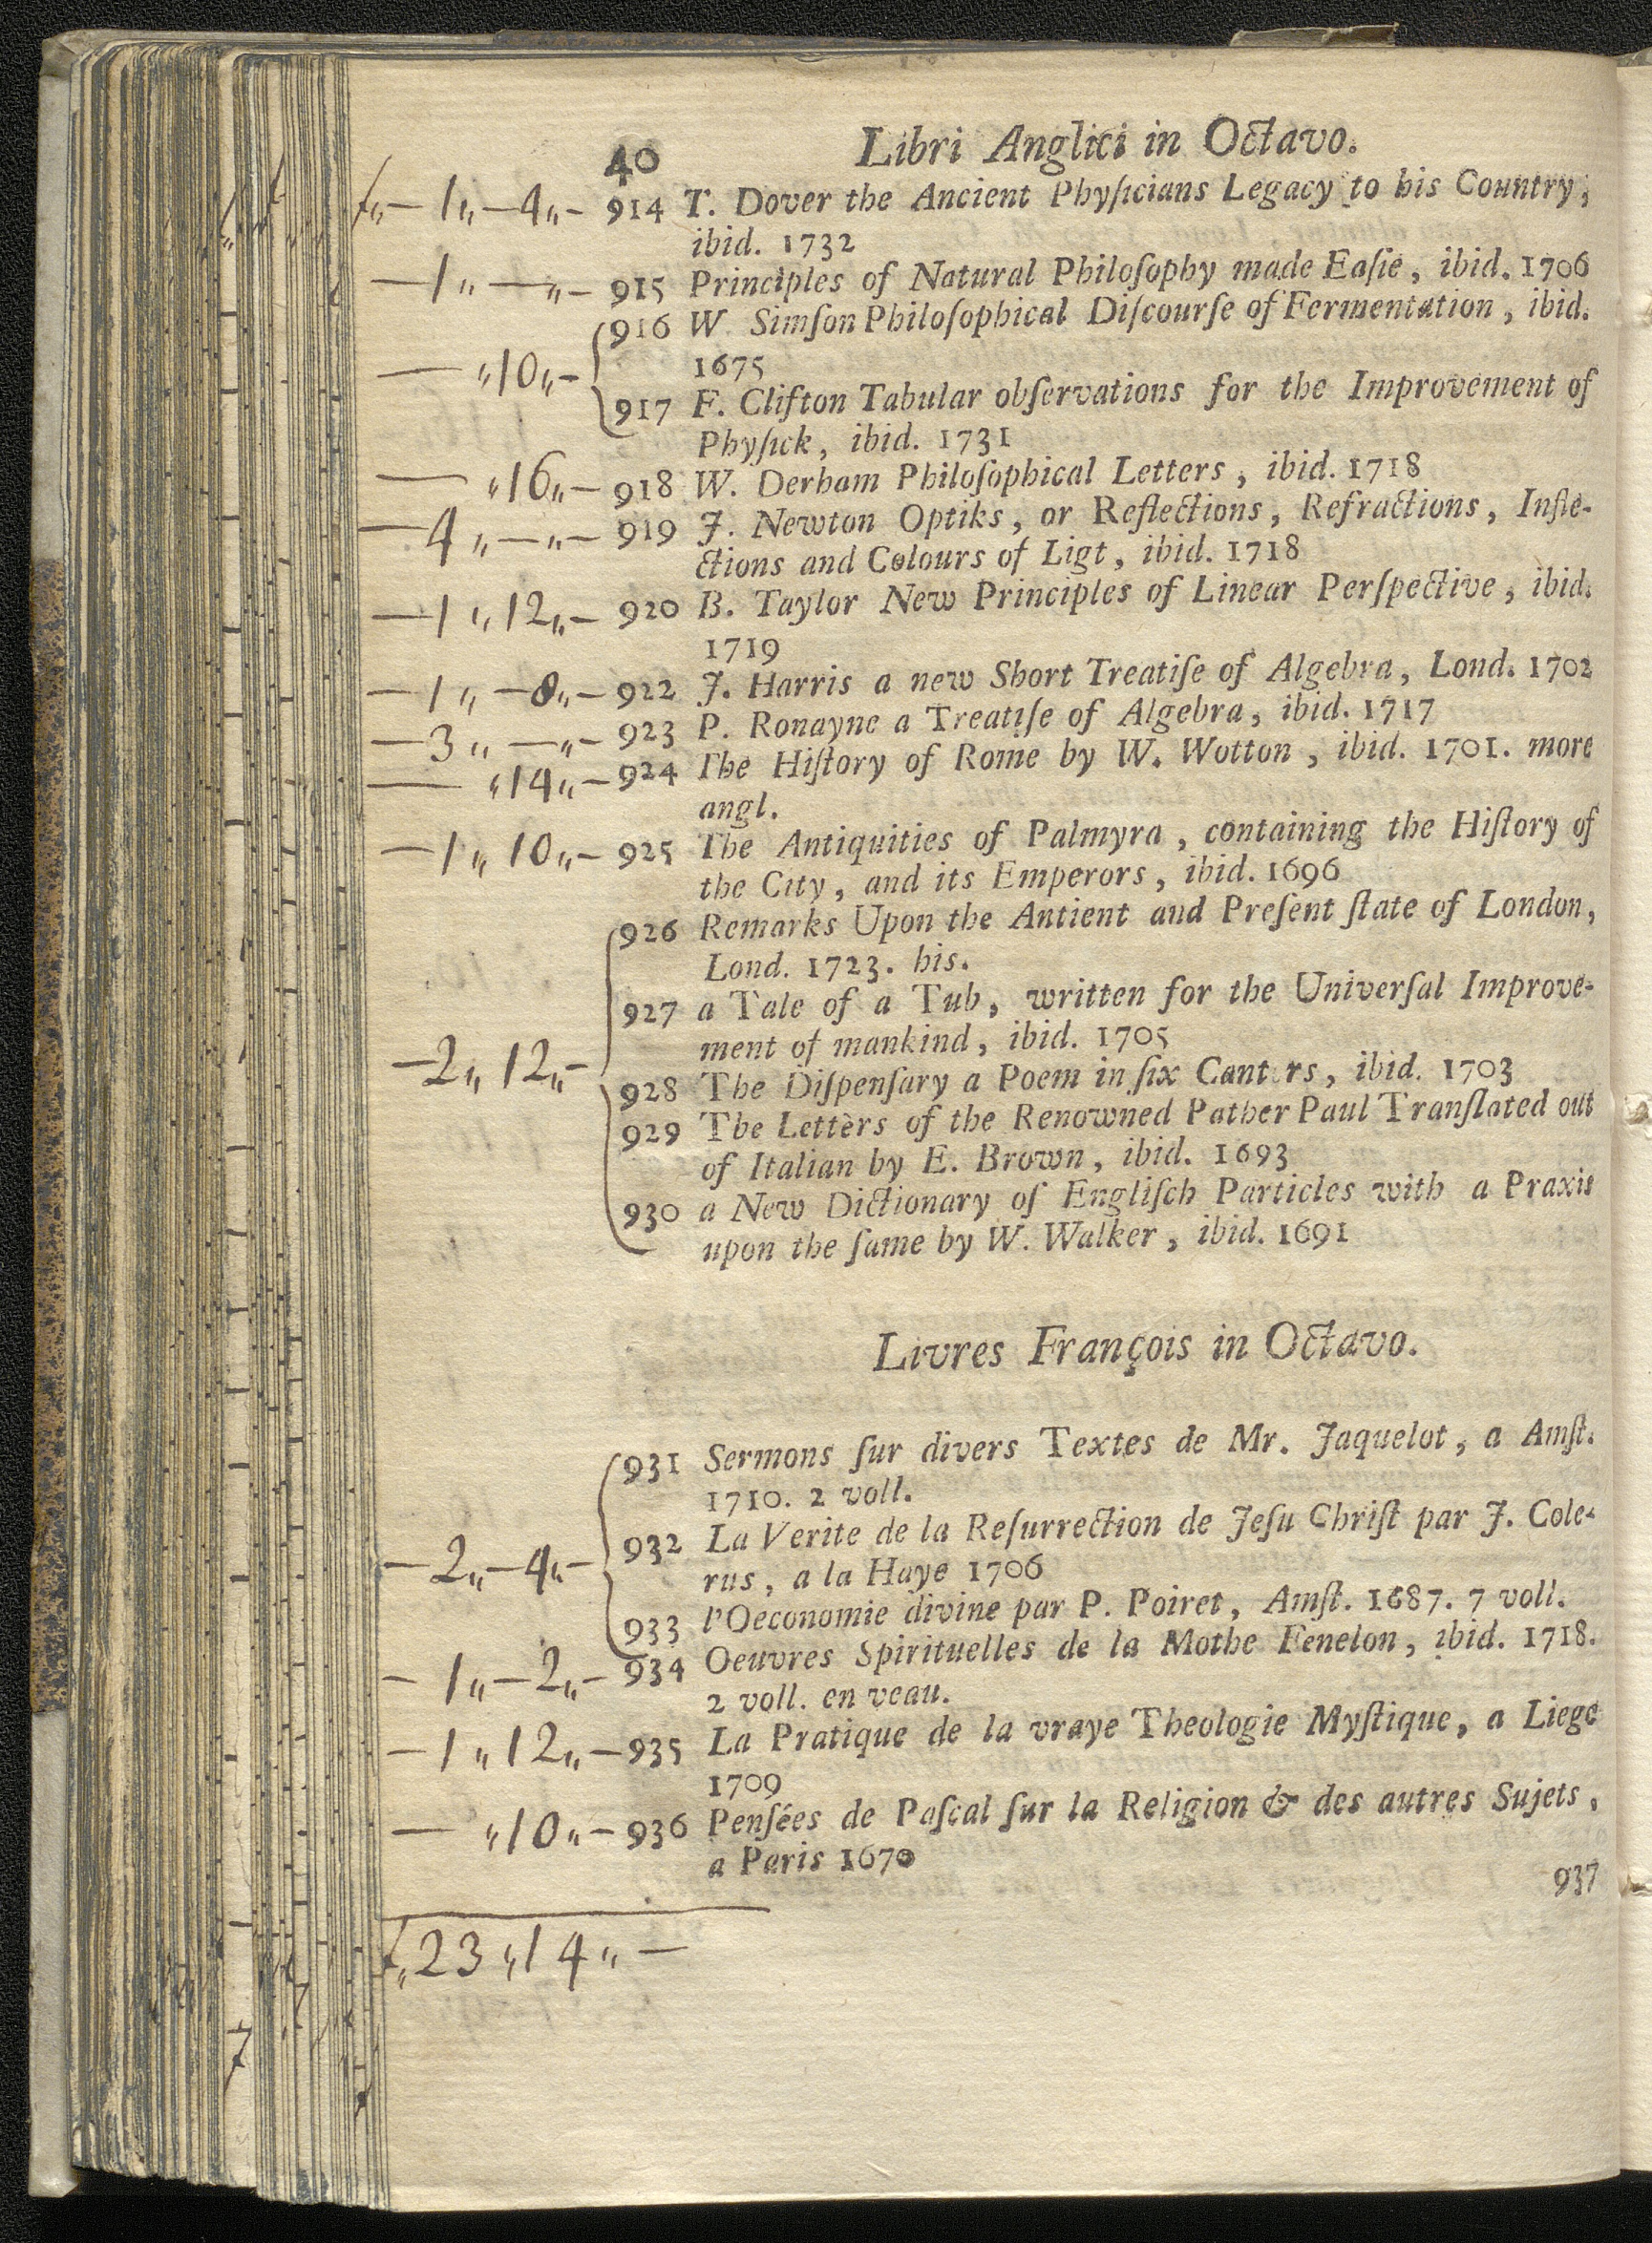 40 Libri Anglici in Octavo.
ƒ„— 1„—4„— 914 T. Dover the Ancient Phyſicians Legacy to his Country,
ibid. 1732
—1„—„— 915 Principles of Natural Philoſophy made Eaſie, ibid. 1706
916 W. Simſon Philoſophical Diſcourſe of Fermentation, ibid.
1675
— „10„—
917 F. Clifton Tabular obſervations for the Improvement of
Phyſick, ibid. 1731
— „16„— 918 W. Derham Philoſophical Letters, ibid. 1718
—4„—„— 919 J. Newton Optiks, or Reflections, Refractions, Infle-
ctions and Colours of Ligt, ibid. 1718
—1„12„— 920 B. Taylor New Principles of Linear Perſpective, ibid.
1719
—1„—8„— 922 J. Harris a new Short Treatiſe of Algebra, Lond. 1702
—3„—„— 923 P. Ronayne a Treatiſe of Algebra, ibid. 1717
— „14„— 924 The Hiſtory of Rome by W. Wotton, ibid. 1701. more
angl.
—1„10„— 925 The Antiquities of Palmyra, containing the Hiſtory of
the City, and its Emperors, ibid. 1696
926 Remarks Upon the Antient and Preſent ſtate of London,
Lond. 1723. his.
927 a Tale of a Tub, written for the Univerſal Improve-
ment of mankind, ibid. 1705
—2„12„—
928 The Diſpenſary a Poem in ſix Canters, ibid. 1703
929 The Letters of the Renowned Pather Paul Tranſlated out
of Italian by E. Brown, ibid. 1693
930 a New Dictionary of Engliſch Particles with a Praxis
upon the ſame by W. Walker, ibid. 1691
Livres François in Octavo.
931 Sermons ſur divers Textes de Mr. Jaquelot, a Amſt.
1710. 2 voll.
932 La Verite de la Reſurrection de Jeſu Chriſt par J. Cole-
—2„—4„— rus, a la Haye 1706
933 l'Oeconomie divine par P. Poiret, Amſt. 1687. 7 voll.
—1„—2„— 934 Oeuvres Spirituelles de la Mothe Fenelon, ibid. 1718.
2 voll. en veau.
—1„12„— 935 La Pratique de la vraye Theologie Myſtique, a Liege
1709
— „10„— 936 Penſées de Paſcal ſur la Religion & des autres Sujets,
a Paris 1670
937
ƒ„23„14„—